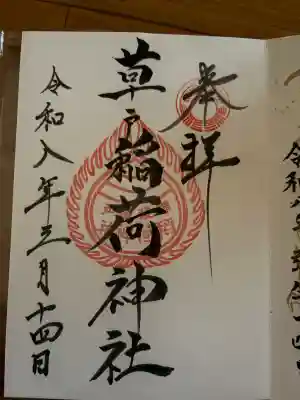 令和八年
奉拝
草戸稲荷神社
令和八年三月十四日